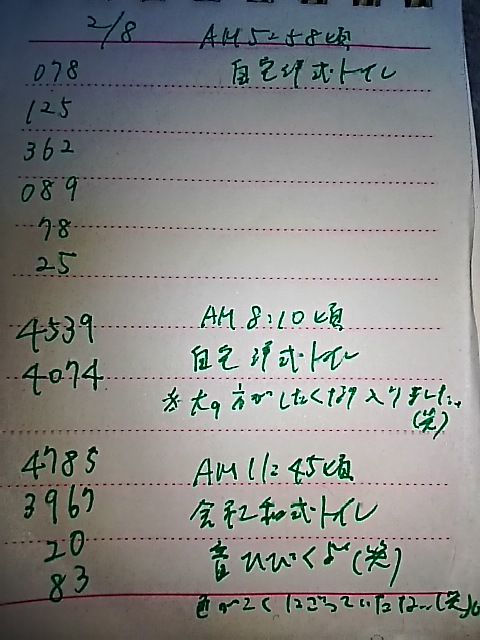 2/8 AM 5:58頃
078 自宅洋式トイレ
125
362
089
78
25
4539 AM 8:10頃
4074 自宅洋式トイレ
※大の方がしたくなり入りました。
(笑)
4785 AM 11:45頃
3967 会社和式トイレ
20 音ひびくよ(笑)
83 色がこくにごっていたな…(笑)